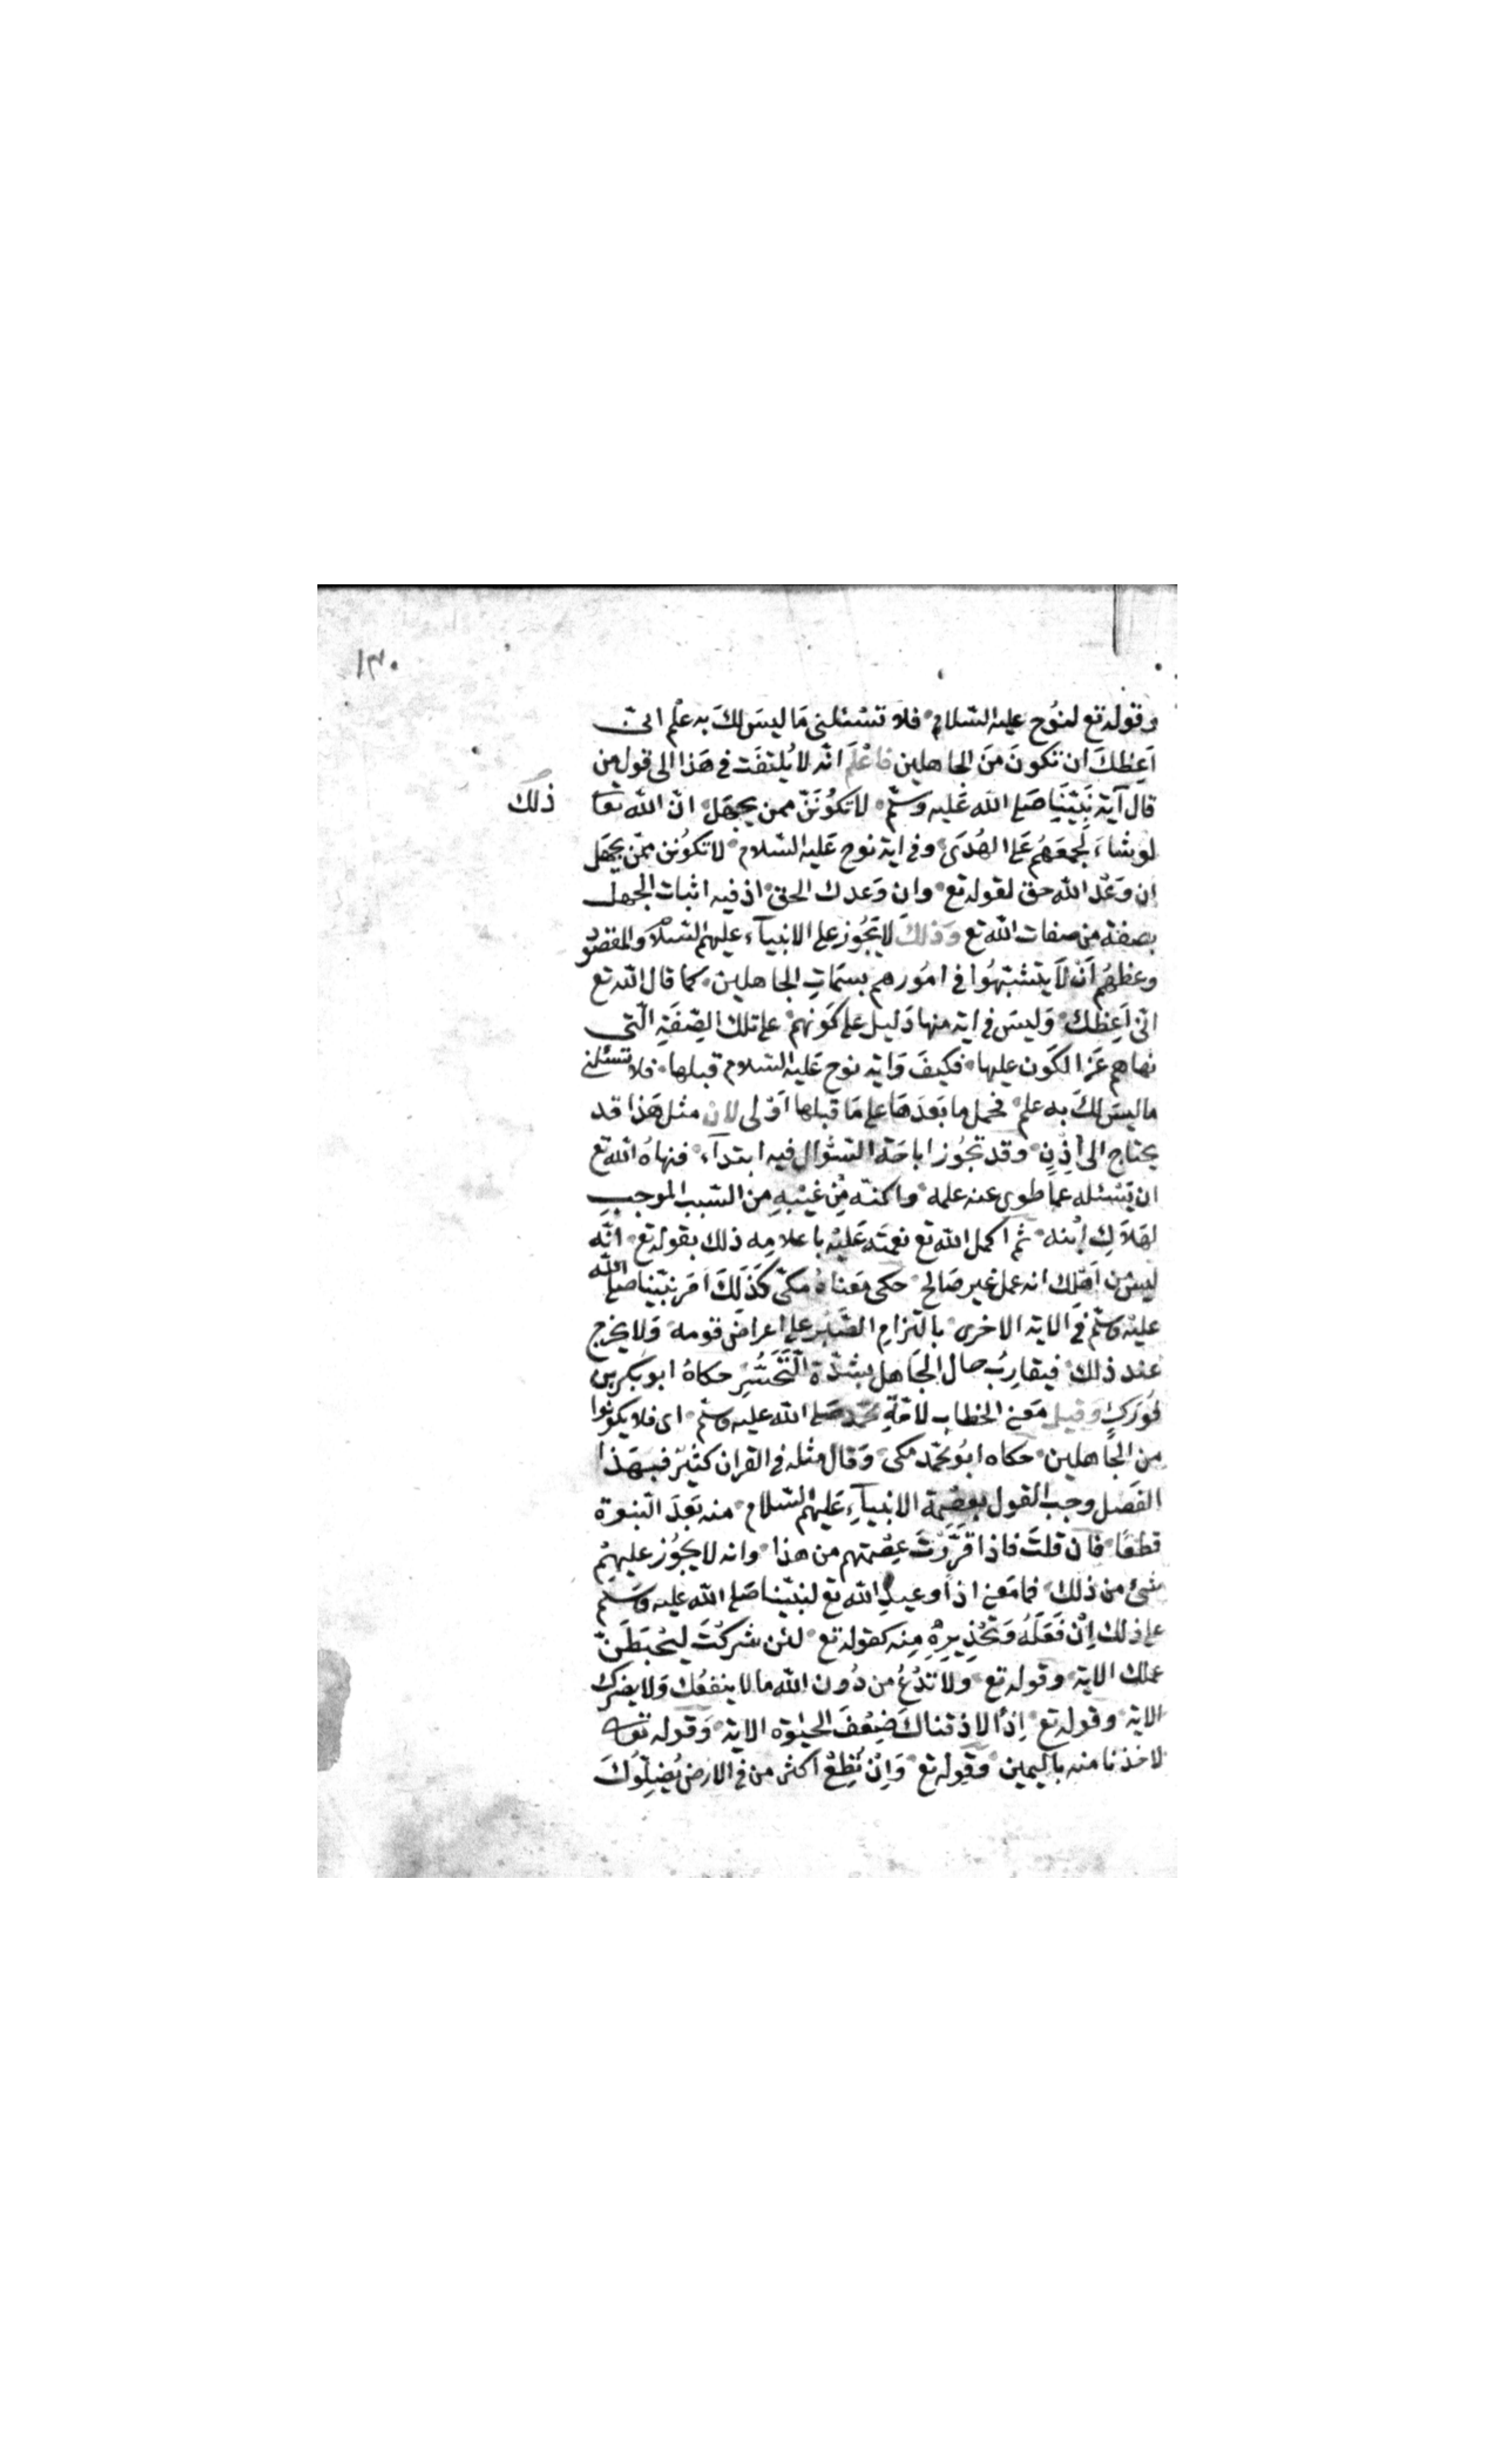 ١٣٠
وقوله تع لنوح عليه السلام فلا تسئلنى ما ليس لك به علم انى
اعظك ان تكون من الجاهلين فاعلم انه لا يلتفت فى هذا الى قول من
قال آية نبينا صلى الله عليه وسلم لا تكونن ممن يجهل ان الله تعا
ذلك
لو شاء لجمعهم على الهدى وفى اية نوح عليه السلام لا تكونن ممن يجهل
ان وعد الله حق لقوله تع وان وعدك الحق اذ فيه اثبات الجهل
بصفة من صفات الله تع وذلك لا تجوز على الانبياء عليهم السلام والمقصود
وعظهم ان لا يتشبهوا فى امورهم بسمات الجاهلين كما قال الله تع
انى اعظك وليس فى اية منها دليل على كونهم على تلك الصفة التى
نهاهم عن الكون عليها فكيف واية نوح عليه السلام قبلها فلا تسئلنى
ما ليس لك به علم فحمل ما بعدها على ما قبلها اولى لان مثل هذا قد
يحتاج الى اذن وقد تجوز اباحة السؤال فيه ابتداء فنهاه الله تع
ان يسئله عما طوى عنه علمه واكنه من غيبه من السبب الموجب
لهلاك ابنه ثم اكمل الله تع نعمته عليه باعلامه ذلك بقوله تع انه
ليس من اهلك انه عمل غير صالح حكى معناه مكى كذلك امر نبينا صلى الله
عليه وسلم فى الاية الاخرى بالتزام الصبر على اعراض قومه ولا يخرج
عند ذلك فيقارب حال الجاهل بشدة التحسر حكاه ابو بكر بن
فورك وقيل معنى الخطاب لامة محمد صلى الله عليه وسلم اى فلا يكونوا
من الجاهلين حكاه ابو محمد مكى وقال مثله فى القران كثير فبهذا
الفصل وجب القول بعصمة الانبياء عليهم السلام منه بعد النبوة
قطعا فان قلت فاذا قررت عصمتهم من هذا وانه لا يجوز عليهم
شئ من ذلك فما معنى اذا وعيد الله تع لنبينا صلى الله عليه وسلم
على ذلك ان فعله وتحذيره منه كقوله تع لئن شركت ليحبطن
عملك الاية وقوله تع ولا تدع من دون الله ما لا ينفعك ولا يضرك
الاية وقوله تع اذا لاذقناك ضعف الحيوة الاية وقوله تعا
لاخذنا منه باليمين وقوله تع وان تطع اكثر من فى الارض يضلوك